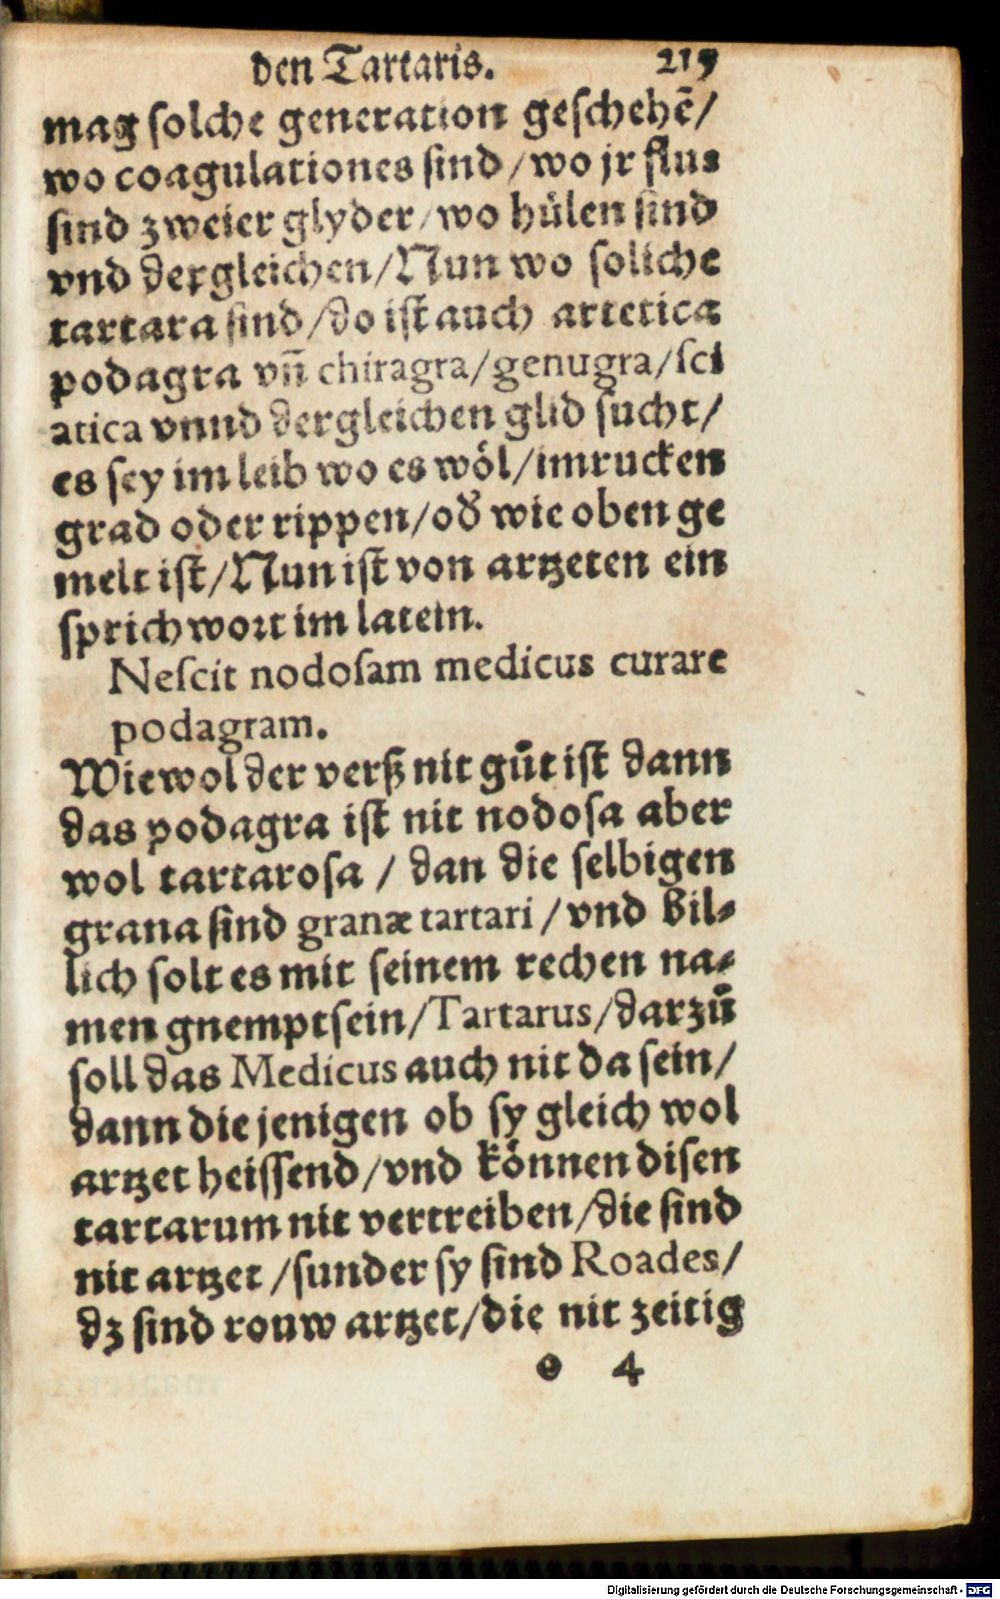 den Tartaris. 215
mag ſolche generation geſchehē/
wo coagulationes ſind/wo jr flus
ſind zweier glyder/wo hülen ſind
vnd dergleichen/Nun wo ſolliche
tartara ſind/do iſt auch artetica
podagra vñ chiragra/genugra/ſci
atica vnnd dergleichen glid ſucht/
es ſey im leib wo es wöl/imrucken
grad oder rippen/od' wie oben ge
melt iſt/Nun iſt von artzeten ein
ſprichwort im latein.
Neſcit nodoſam medicus curare
podagram.
Wiewol der verß nit gůt iſt dann
das podagra iſt nit nodoſa aber
wol tartaroſa / dan die ſelbigen
grana ſind granæ tartari / vnd bil⸗
lich ſolt es mit ſeinem rechen na⸗
men gnemptſein/Tartarus/darzů
ſoll das Medicus auch nit da ſein/
dann die jenigen ob ſy gleich wol
artzet heiſſend/vnd können diſen
tartarum nit vertreiben/die ſind
nit artzet /ſunder ſy ſind Roades/
dz ſind rouw artzet/die nit zeitig
e 4
Digitalisierung gefördert durch die Deutsche Forschungsgemeinschaft - DFG